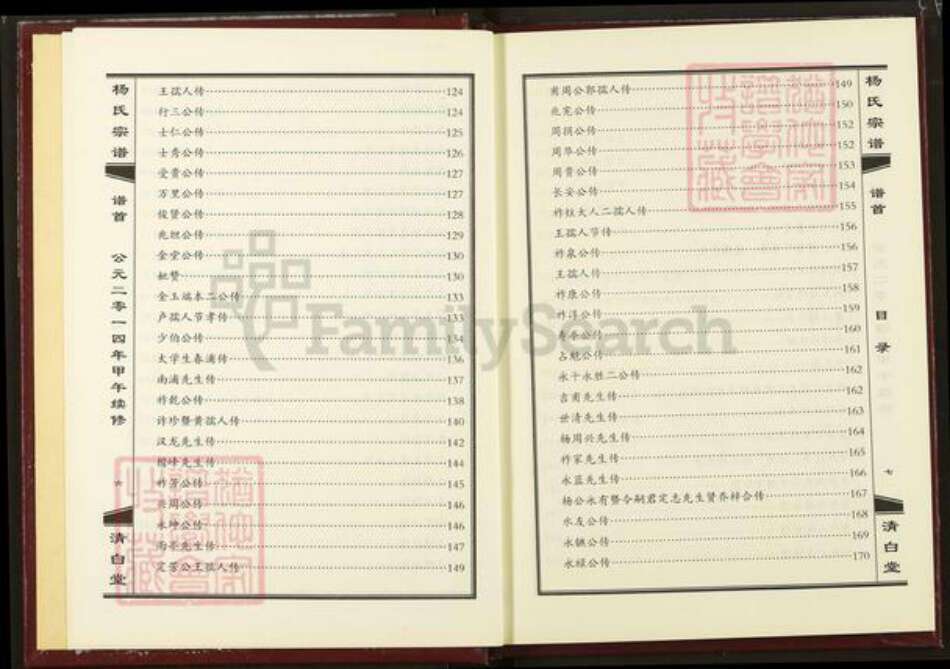 杨氏宗谱
谱首
公元二零一四年甲午续修
六
清白堂
王孺人传 124
行三公传 124
士仁公传 125
士秀公传 126
受贵公传 127
万里公传 127
俊贤公传 128
兆坦公传 129
金堂公传 130
妣赞 130
金玉端本二公传 133
卢孺人节孝传 133
少伯公传 134
太学生春浦传 136
南浦先生传 137
祚乾公传 138
诗珍暨黄孺人传 140
汉龙先生传 142
先生传 144
祚芳公传 145
兴周公传 146
永坤公传 146
先生传 147
定芳公王孺人传 149
周公郭孺人传 149
兆宪公传 150
周公传 152
周华公传 152
周贵公传 153
长安公传 154
祚大人二孺人传 155
王孺人节传 156
祚泉公传 156
王孺人传 157
祚康公传 158
祚洋公传 159
寿春公传 160
占魁公传 161
永十永胜二公传 162
吉甫先生传 162
世清先生传 163
杨周兴先生传 164
祚家先生传 165
永蓝先生传 166
杨公永有暨令嗣君定志先生贤乔梓合传 167
永友公传 168
永公传 169
永禄公传 170
杨氏宗谱
谱首
目录
七
清白堂
FamilySearch